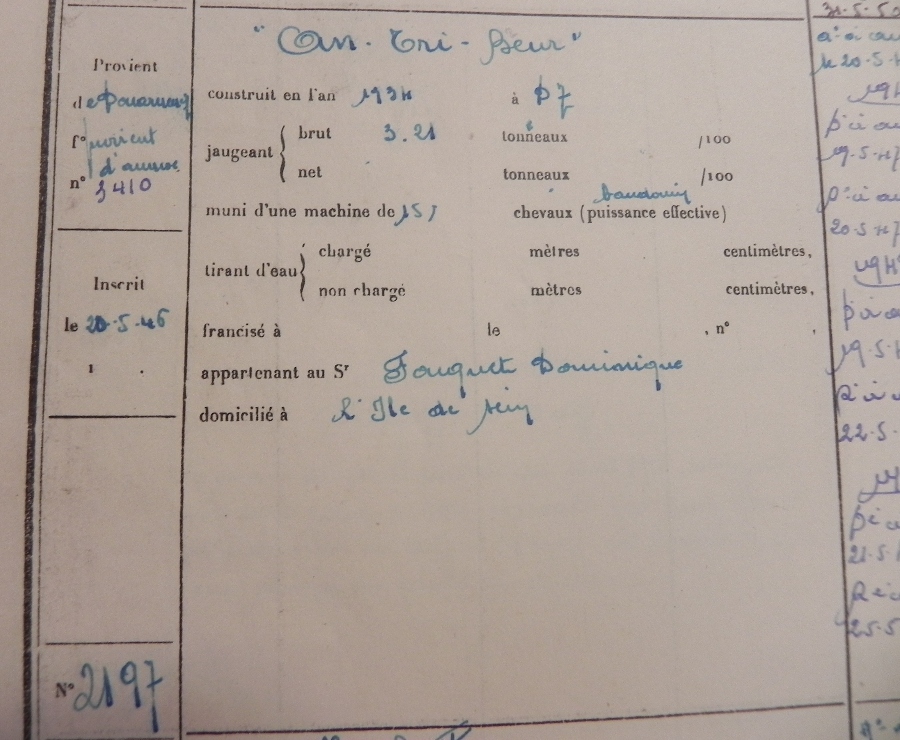 Provient
de Douarnenez
f°
n° 3410
Inscrit
le 20-5-46
N° 2197
"An-Tri-Beur"
construit en l'an 1934 à DZ
jaugeant { brut 3.21 tonneaux /100
net tonneaux /100
baudouin
muni d'une machine de 15 chevaux (puissance effective)
tirant d'eau { chargé mètres centimètres,
non chargé mètres centimètres,
francisé à le , n° ,
appartenant au Sr Fouquet Dominique
domicilié à L'Ile de Sein
31-5-50
le 20-5-4
19-5-47
20-5-47
19-5-4
22-5-
21-5-
25-5